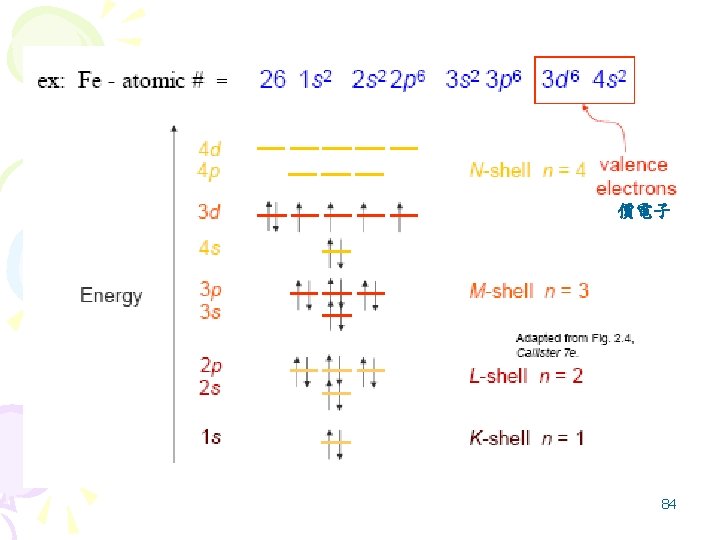 ex: Fe - atomic # = 26 1s² 2s² 2p⁶ 3s² 3p⁶ 3d⁶ 4s²
valence
electrons
價電子
4d
4p N-shell n = 4
3d
4s
Energy
3p M-shell n = 3
3s
Adapted from Fig. 2.4,
Callister 7e.
2p
2s L-shell n = 2
1s K-shell n = 1
84